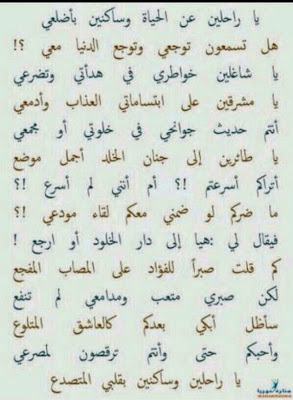 يا راحلين عن الحياة وساكنين بأضلعي
هل تسمعون توجعي وتوجع الدنيا معي ؟!
يا شاغلين خواطري في هدأتي وتضرعي
يا مشرقين على ابتساماتي العذاب وأدمعي
أنتم حديث جوانحي في خلوتي أو مجمعي
يا طائرين إلى جنان الخلد أجمل موضع
أتراكم أسرعتم !؟ أم أنني لم أسرع !؟
ما ضركم لو ضمني معكم لقاء مودعي !؟
فيقال لي :هيا إلى دار الخلود أو ارجع !
كم قلت صبراً للفؤاد على المصاب المفجع
لكن صبري متعب ومدامعي لم تنفع
سأظل أبكي بعدكم كالعاشق المتلوع
وأحبكم حتى وأنتم ترقصون لمصرعي
يا راحلين وساكنين بقلبي المتصدع